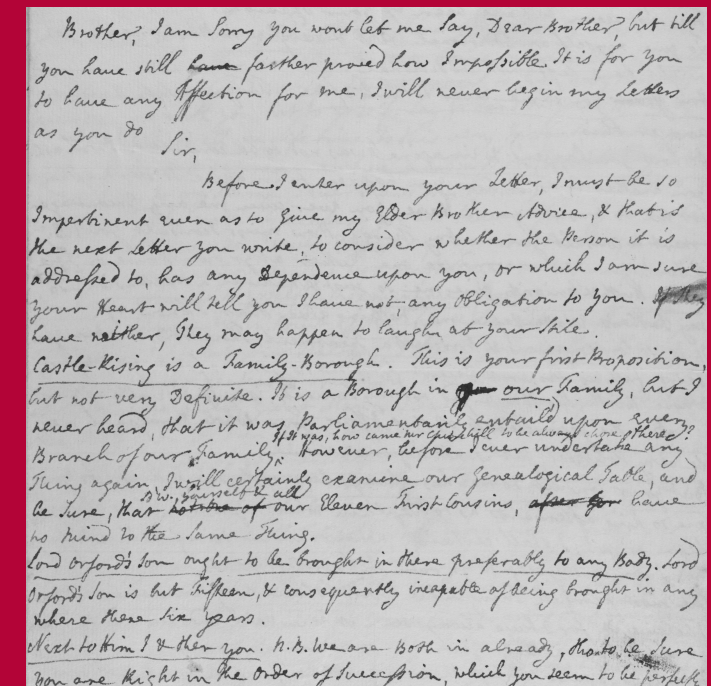 Brother, I am Sorry you wont let me Say, Dear Brother, but till
you have still have farther proved how Impossible It is for you
to have any Affection for me, I will never begin my Letters
as you do
Sir,
Before I enter upon your Letter, I must be so
Impertinent even as to give my Elder Brother Advice, & that is
the next Letter you write, to consider whether the Person it is
addressed to, has any Dependence upon you, or which I am sure
your Heart will tell you I have not, any Obligation to you. If they
have neither, They may happen to laugh at your Stile.
Castle-Rising is a Family-Borough. This is your first Proposition,
but not very Definite. It is a Borough in our Family, but I
never heard, that it was Parliamentarily entail'd upon every
If It was, how came Mr Churchill to be always chose there?
Branch of our Family. However, before I ever undertake any
Thing again, I will certainly examine our Genealogical Table, and
yourself & all
be sure, that not one of our Eleven First Cousins, after you have
no mind to the same Thing.
Lord Orford's Son ought to be brought in there preferably to any Body. Lord
Orford's Son is but Fifteen, & consequently incapable of being brought in any
where these Six years.
Next to Him I & then you. N.B. We are Both in already, tho to be sure
you are Right in the Order of Succession, which you seem to be perfectly